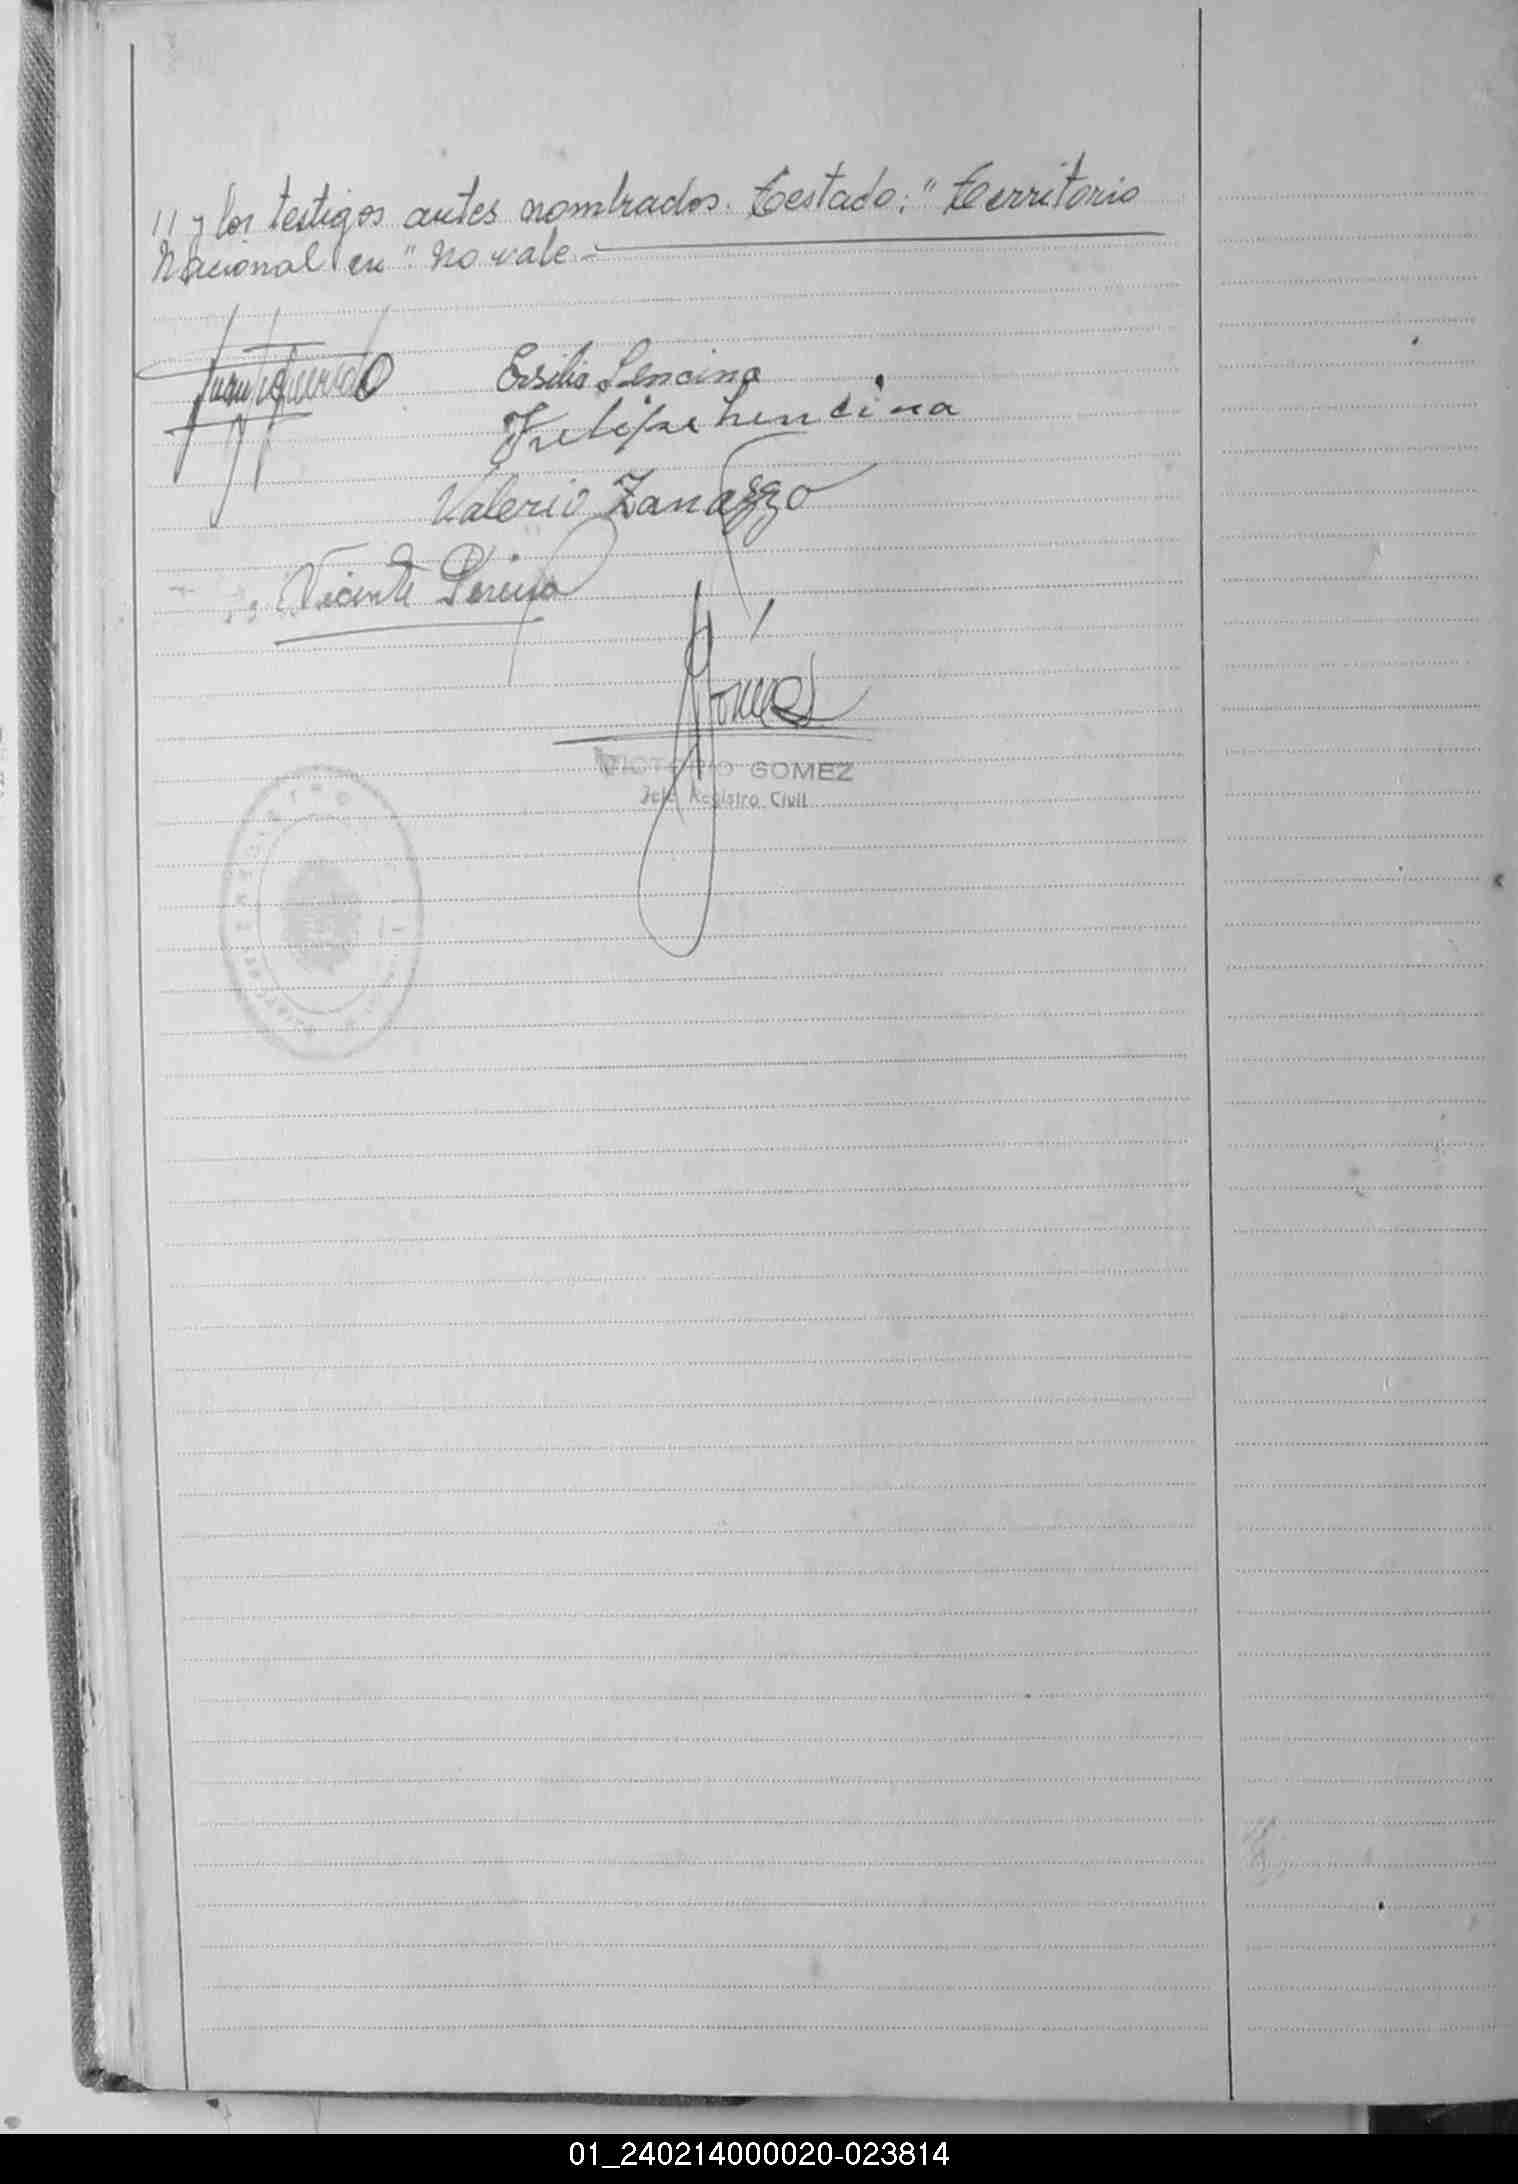 // y los testigos antes nombrados. Testado: "Territorio
Nacional en" No vale -
Ersilia Lencina
Felipe Lencina
Valerio Zanazzo
Vicente Pereira
Gómez
VICTORIO GOMEZ
Jefe Registro Civil
REGISTRO
01_240214000020-023814